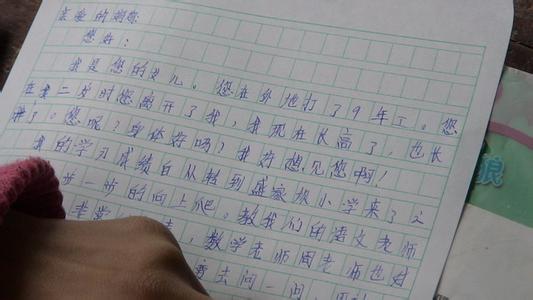 亲爱的妈妈
您好:
我是您的女儿。您在外地打了9年工。您
在我二岁时您离开了我,我现在长高了,也长
胖了。您呢?身体好吗?我好想见您啊!
我的学习成绩自从转到盛家坝小学来了之
步一步的向上爬。教我们的语文老师
非常
数学老师周老师也好
去问一问,
狼